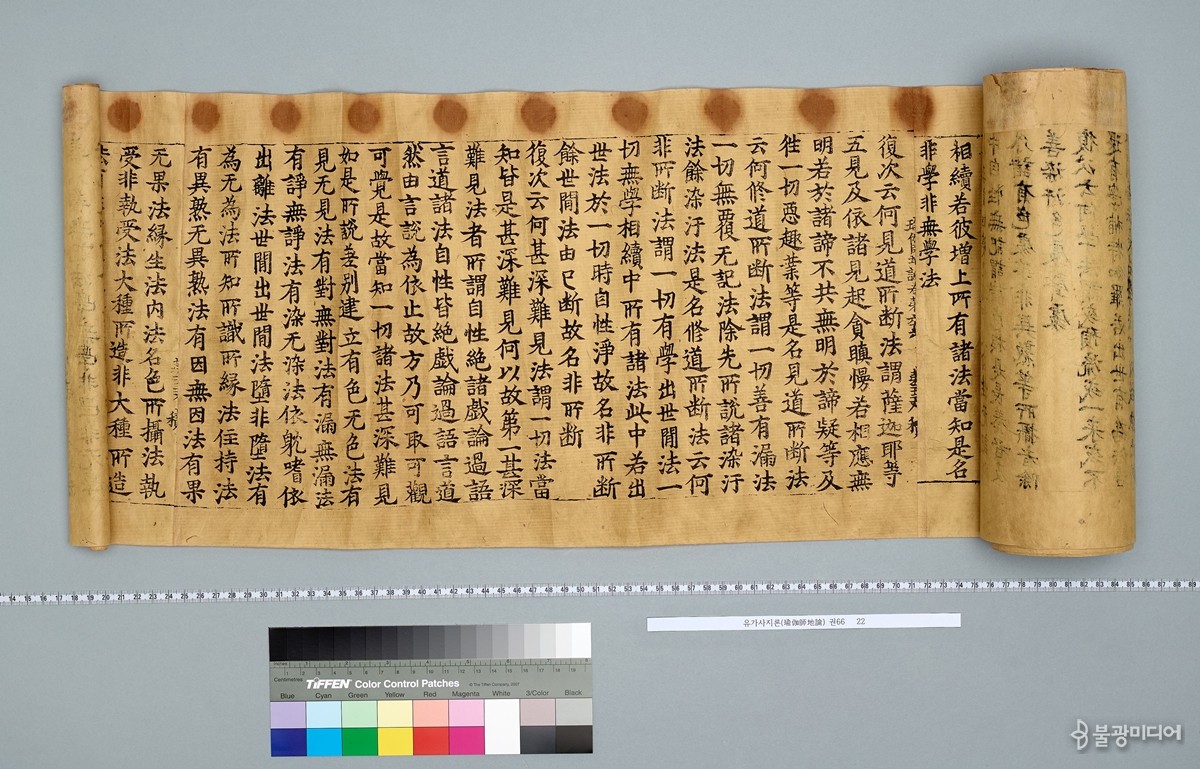 相續若彼增上所有諸法當知是名
非學非無學法
復次云何見道所斷法謂薩迦耶等
五見及依諸見起貪瞋慢若相應無
明若於諸諦不共無明於諦疑等及
往一切惡趣業等是名見道所斷法
云何修道所斷法謂一切善有漏法
一切無覆无記法除先所說諸染汙
法餘染汙法是名修道所斷法云何
非所斷法謂一切有學出世間法一
切無學相續中所有諸法此中若出
世法於一切時自性淨故名非所斷
餘世間法由已斷故名非所斷
復次云何甚深難見法謂一切法當
知皆是甚深難見何以故第一甚深
難見法者所謂自性絕諸戲論過語
言道諸法自性皆絕戲論過語言道
然由言說為依止故方乃可取可觀
可覺是故當知一切諸法甚深難見
如是所說差別建立有色无色法有
見无見法有對無對法有漏無漏法
有諍無諍法有染无染法依躭嗜依
出離法世間出世間法墮非墮法有
為无為法所知所識所緣法住持法
有異熟无異熟法有因無因法有果
无果法緣生法內法名色所攝法執
受非執受法大種所造非大種所造
유가사지론(瑜伽師地論) 권66 22
Inches
Centimetres
TIFFEN Color Control Patches
© The Tiffen Company, 2007
Blue Cyan Green Yellow Red Magenta White 3/Color Black
불광미디어